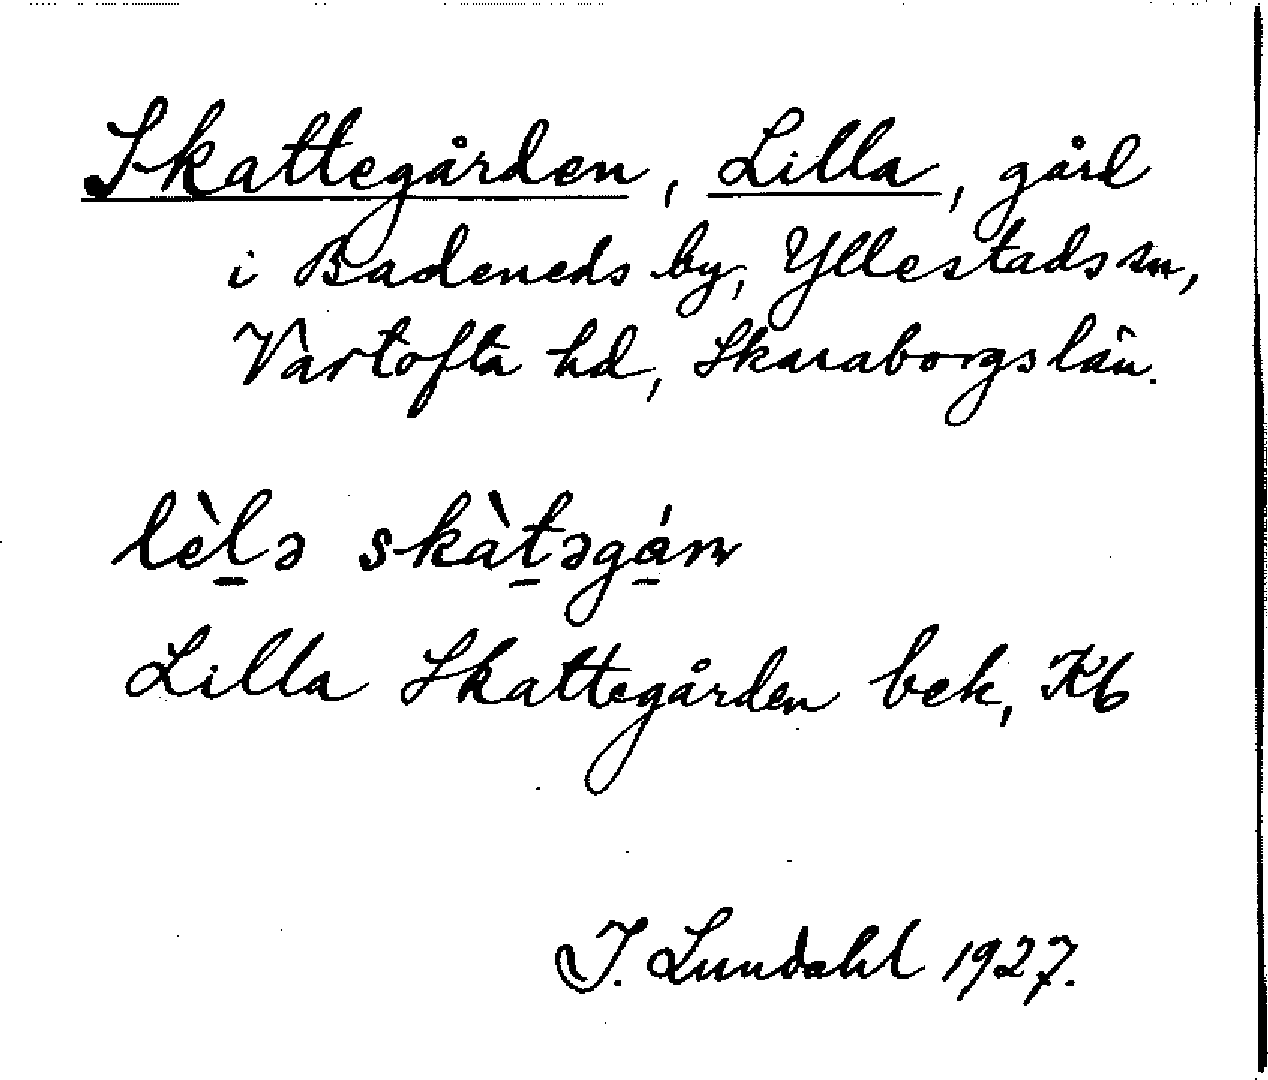 Skattegården, Lilla, gård
i Badeneds by, Yllestads sn,
Vartofta hd, Skaraborgs län.
lè̀l̠ə skàt̠əgá̠rn
Lilla Skattegården bek, Kb
I. Lundahl 1927.